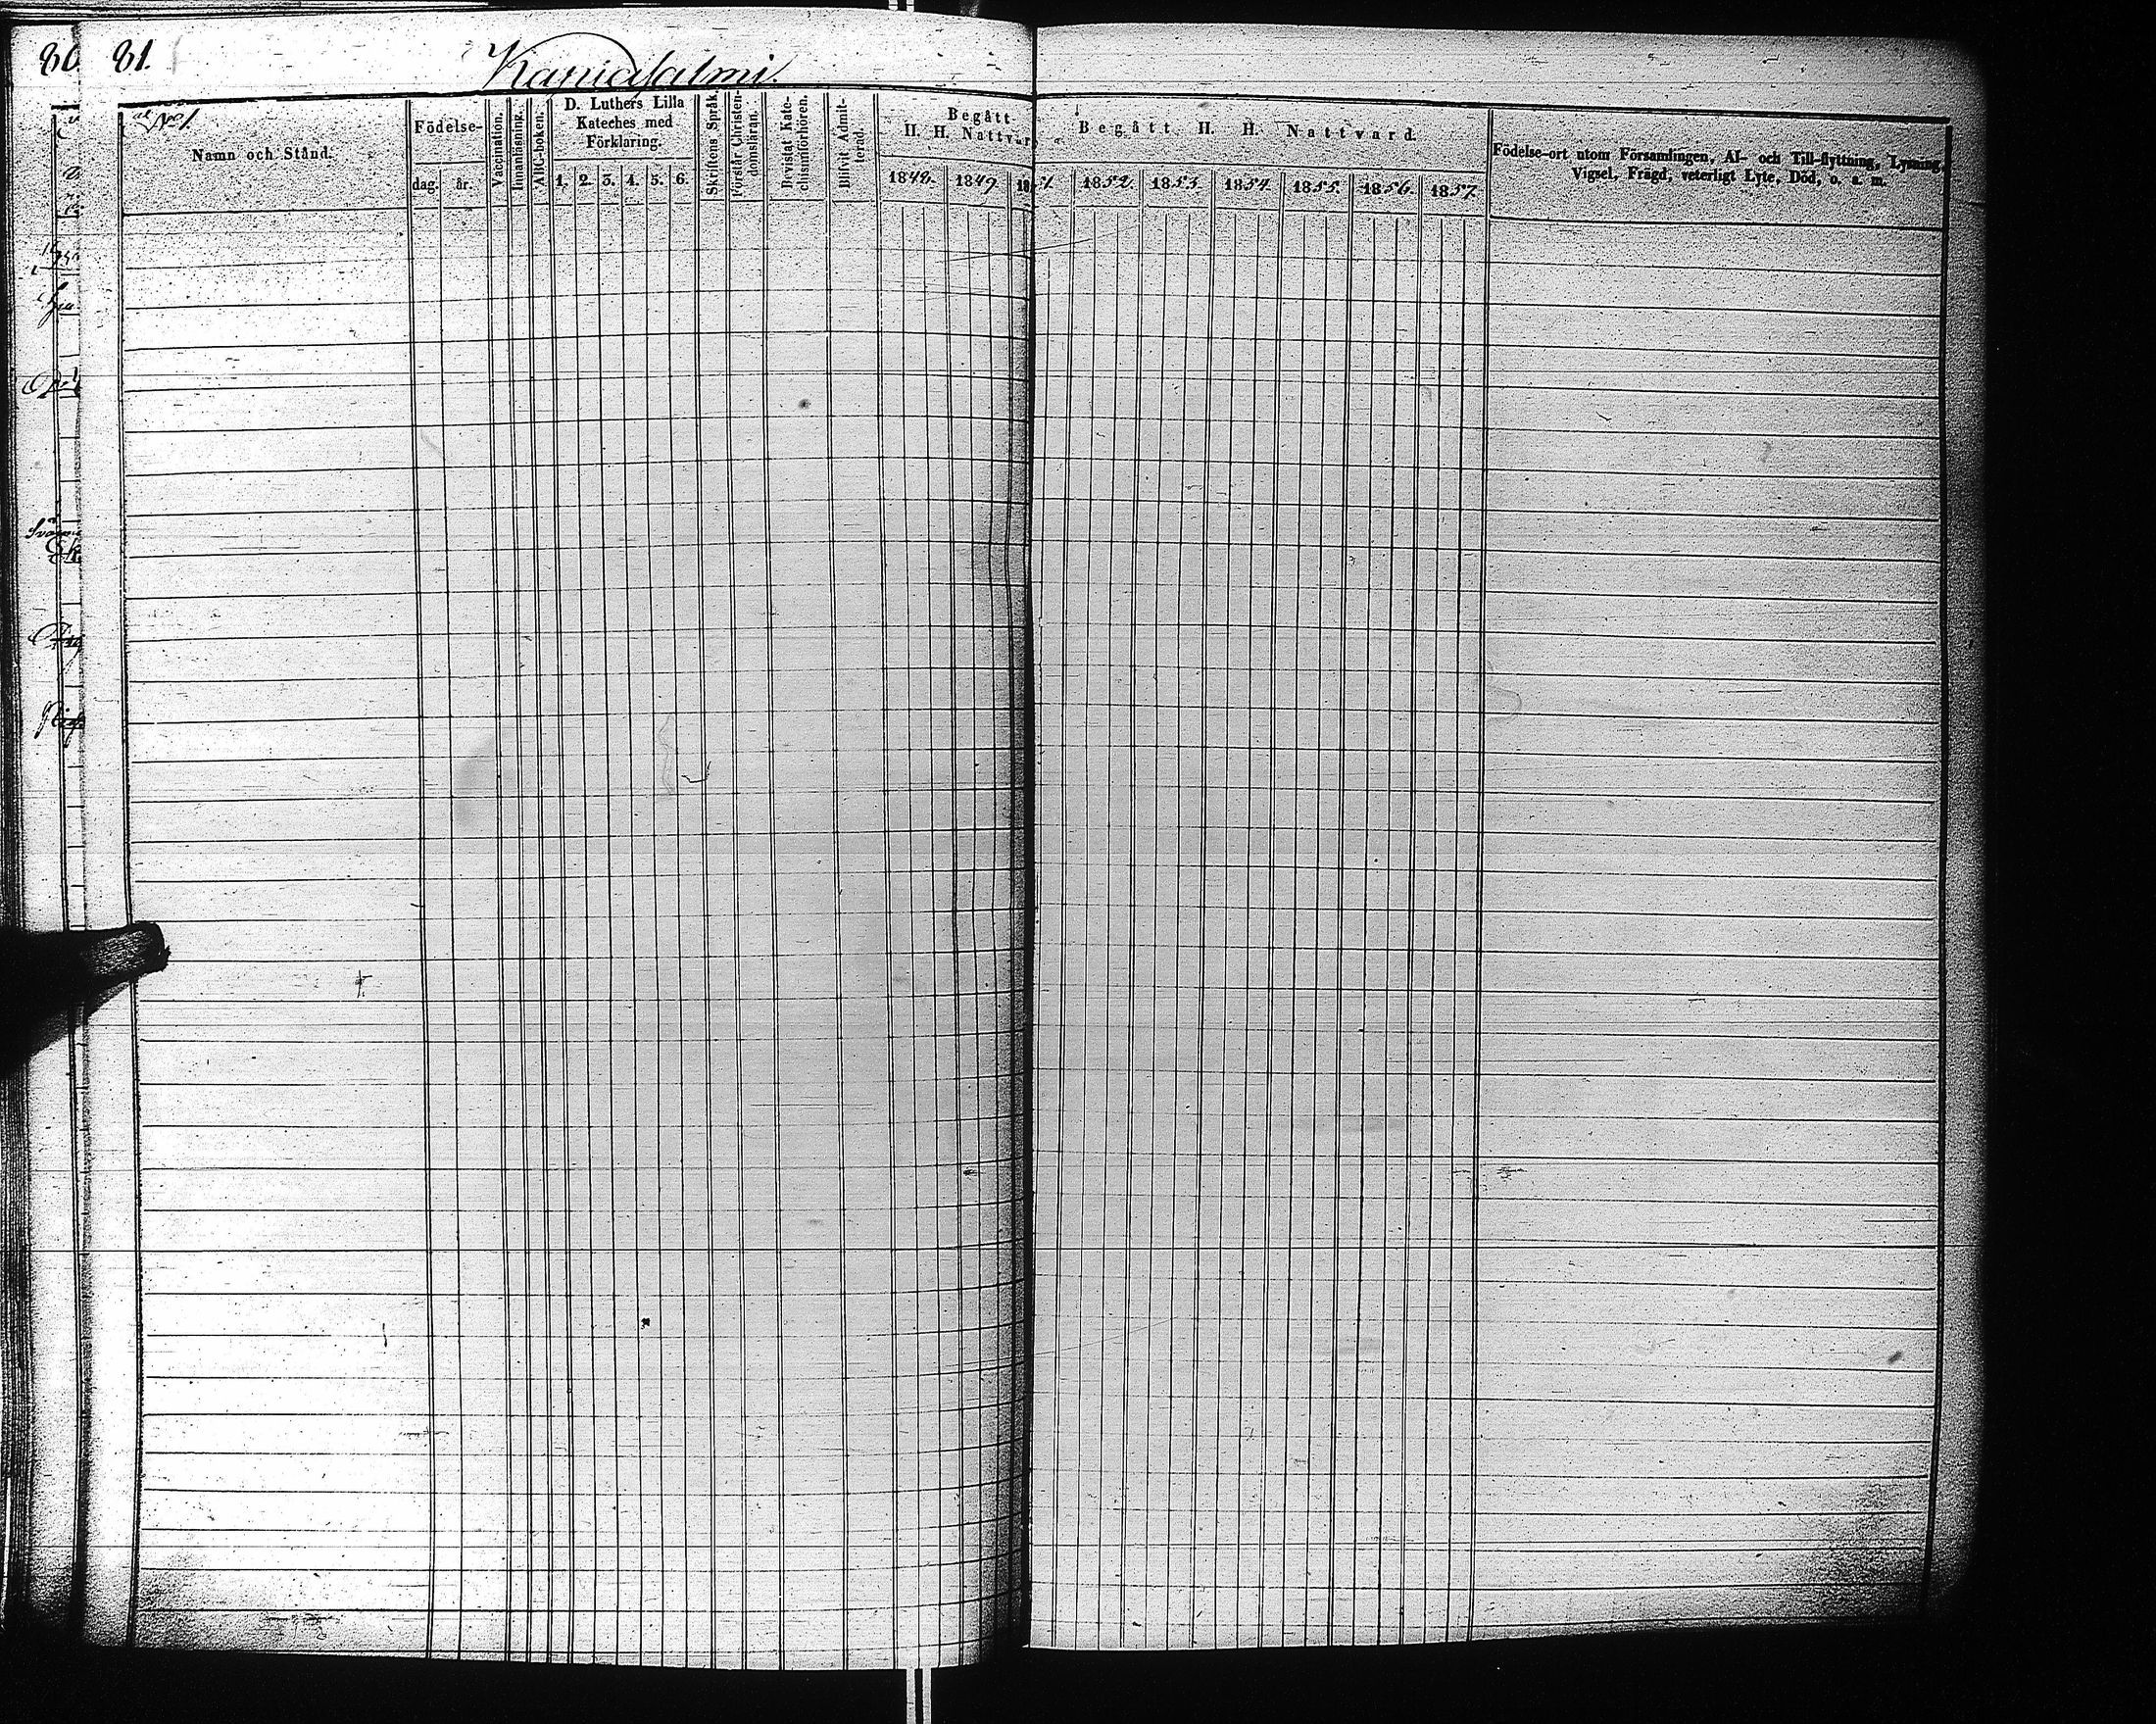 80 81.
Kaniasalmi.
No 1.
Namn och Stånd.
Födelse-
dag. år.
Vaccination.
Innanläsning.
ABC-boken.
D. Luthers Lilla
Kateches med
Förklaring.
1. 2. 3. 4. 5. 6.
Skriftens Språk.
Förstår Christen-
domsläran.
Bevistat Kate-
chismiförhören.
Blifvit Admit-
terad.
Begått
H. H. Nattvard
1848. 1849. 18
Begått H. H. Nattvard.
1. 1852. 1853. 1854. 1855. 1856. 1857.
Födelse-ort utom Församlingen, Af- och Till-flyttning, Lysning,
Vigsel, Frägd, veterligt Lyte, Död, o. s. m.